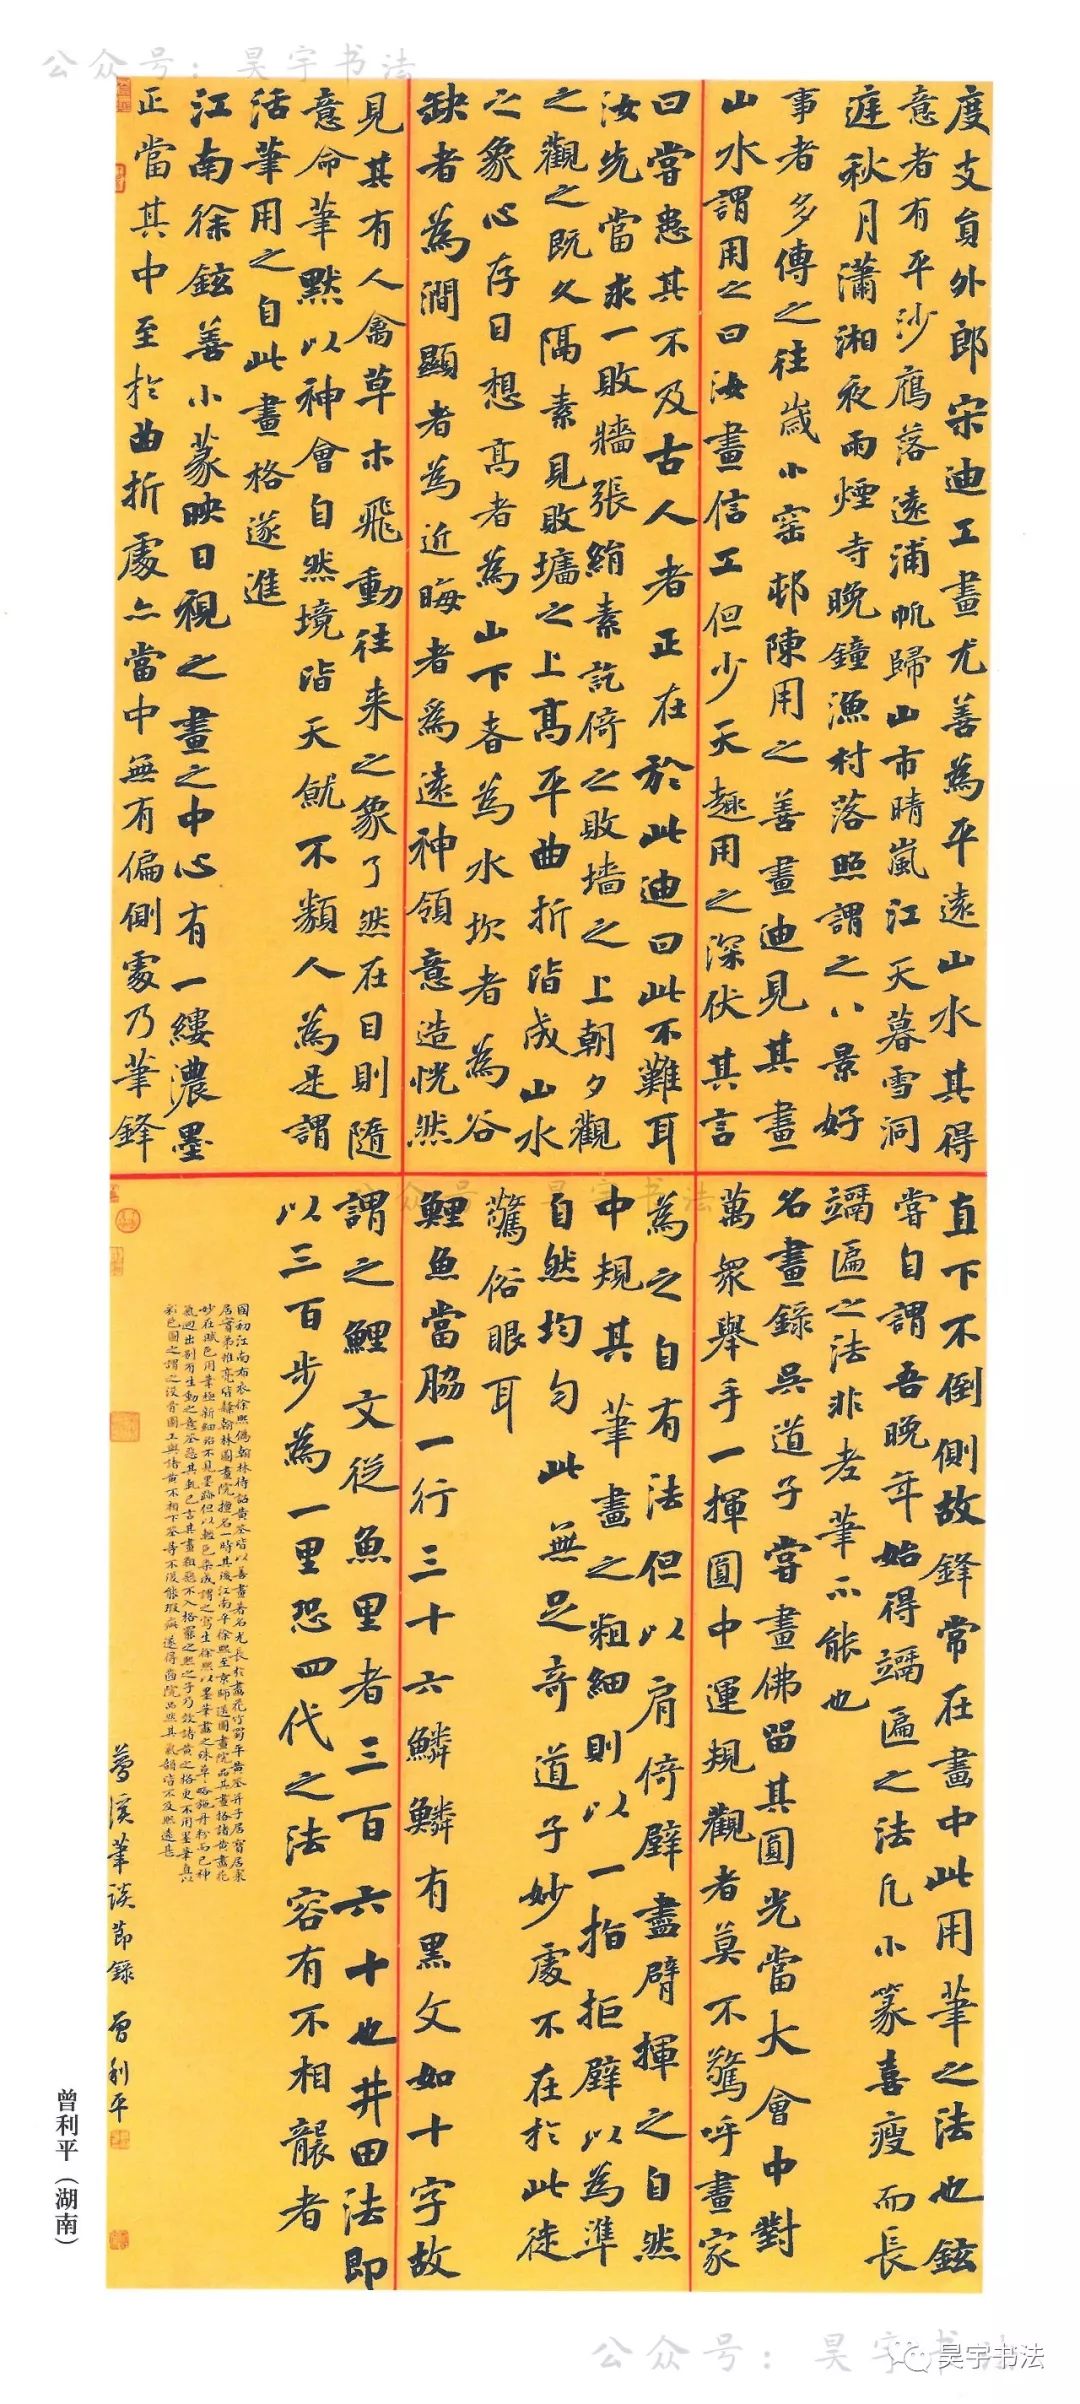 公众号：昊宇书法
度支員外郎宋迪工畫尤善為平遠山水其得
意者有平沙鴈落遠浦帆歸山市晴嵐江天暮雪洞
庭秋月瀟湘夜雨煙寺晚鐘漁村落照謂之八景好
事者多傳之往歲小窑邨陳用之善畫迪見其畫
山水謂用之曰汝畫信工但少天趣用之深伏其言
曰嘗患其不及古人者正在於此迪曰此不難耳
汝先當求一敗牆張絹素訖倚之敗墻之上朝夕觀
之觀之既久隔素見敗墉之上高平曲折皆成山水
之象心存目想高者為山下者為水坎者為谷
缺者為澗顯者為近晦者為遠神領意造恍然
見其有人禽草木飛動往来之象了然在目則隨
意命筆默以神會自然境皆天就不類人為是謂
活筆用之自此畫格遂進
江南徐鉉善小篆映日視之畫之中心有一縷濃墨
正當其中至於曲折處亦當中無有偏側處乃筆鋒
公众号：昊宇书法
直下不倒側故鋒常在畫中此用筆之法也鉉
嘗自謂吾晚年始得竵匾之法凡小篆喜瘦而長
竵匾之法非老筆不能也
名畫錄吳道子嘗畫佛留其圓光當大會中對
萬眾舉手一揮圓中運規觀者莫不驚呼畫家
為之自有法但以肩倚壁盡臂揮之自然
中規其筆畫之粗細則以一指拒壁以為準
自然均勻此無足奇道子妙處不在於此徒
驚俗眼耳
鯉魚當脇一行三十六鱗鱗有黑文如十字故
謂之鯉文從魚里者三百六十也井田法即
以三百步為一里恐四代之法容有不相襲者
國初江南布衣徐熙偽翰林待詔黃筌皆以善畫著名尤長於畫花竹蜀平黃筌并子居寶居寀
居實弟惟亮皆隸翰林圖畫院擅名一時其後江南平徐熙至京師送圖畫院品其畫格諸黃畫花
妙在賦色用筆極新細殆不見墨跡但以輕色染成謂之寫生徐熙以墨筆畫之殊草草略施丹粉而已神
氣迥出別有生動之意筌惡其軋己言其畫粗惡不入格罷之熙之子乃效諸黃之格更不用墨筆直以
彩色圖之謂之沒骨圖工與諸黃不相下筌等不復能瑕疵遂得齒院品然其氣韻皆不及熙遠甚
夢溪筆談節錄 曾利平
曾利平（湖南）
公众号：昊宇书法
昊宇书法